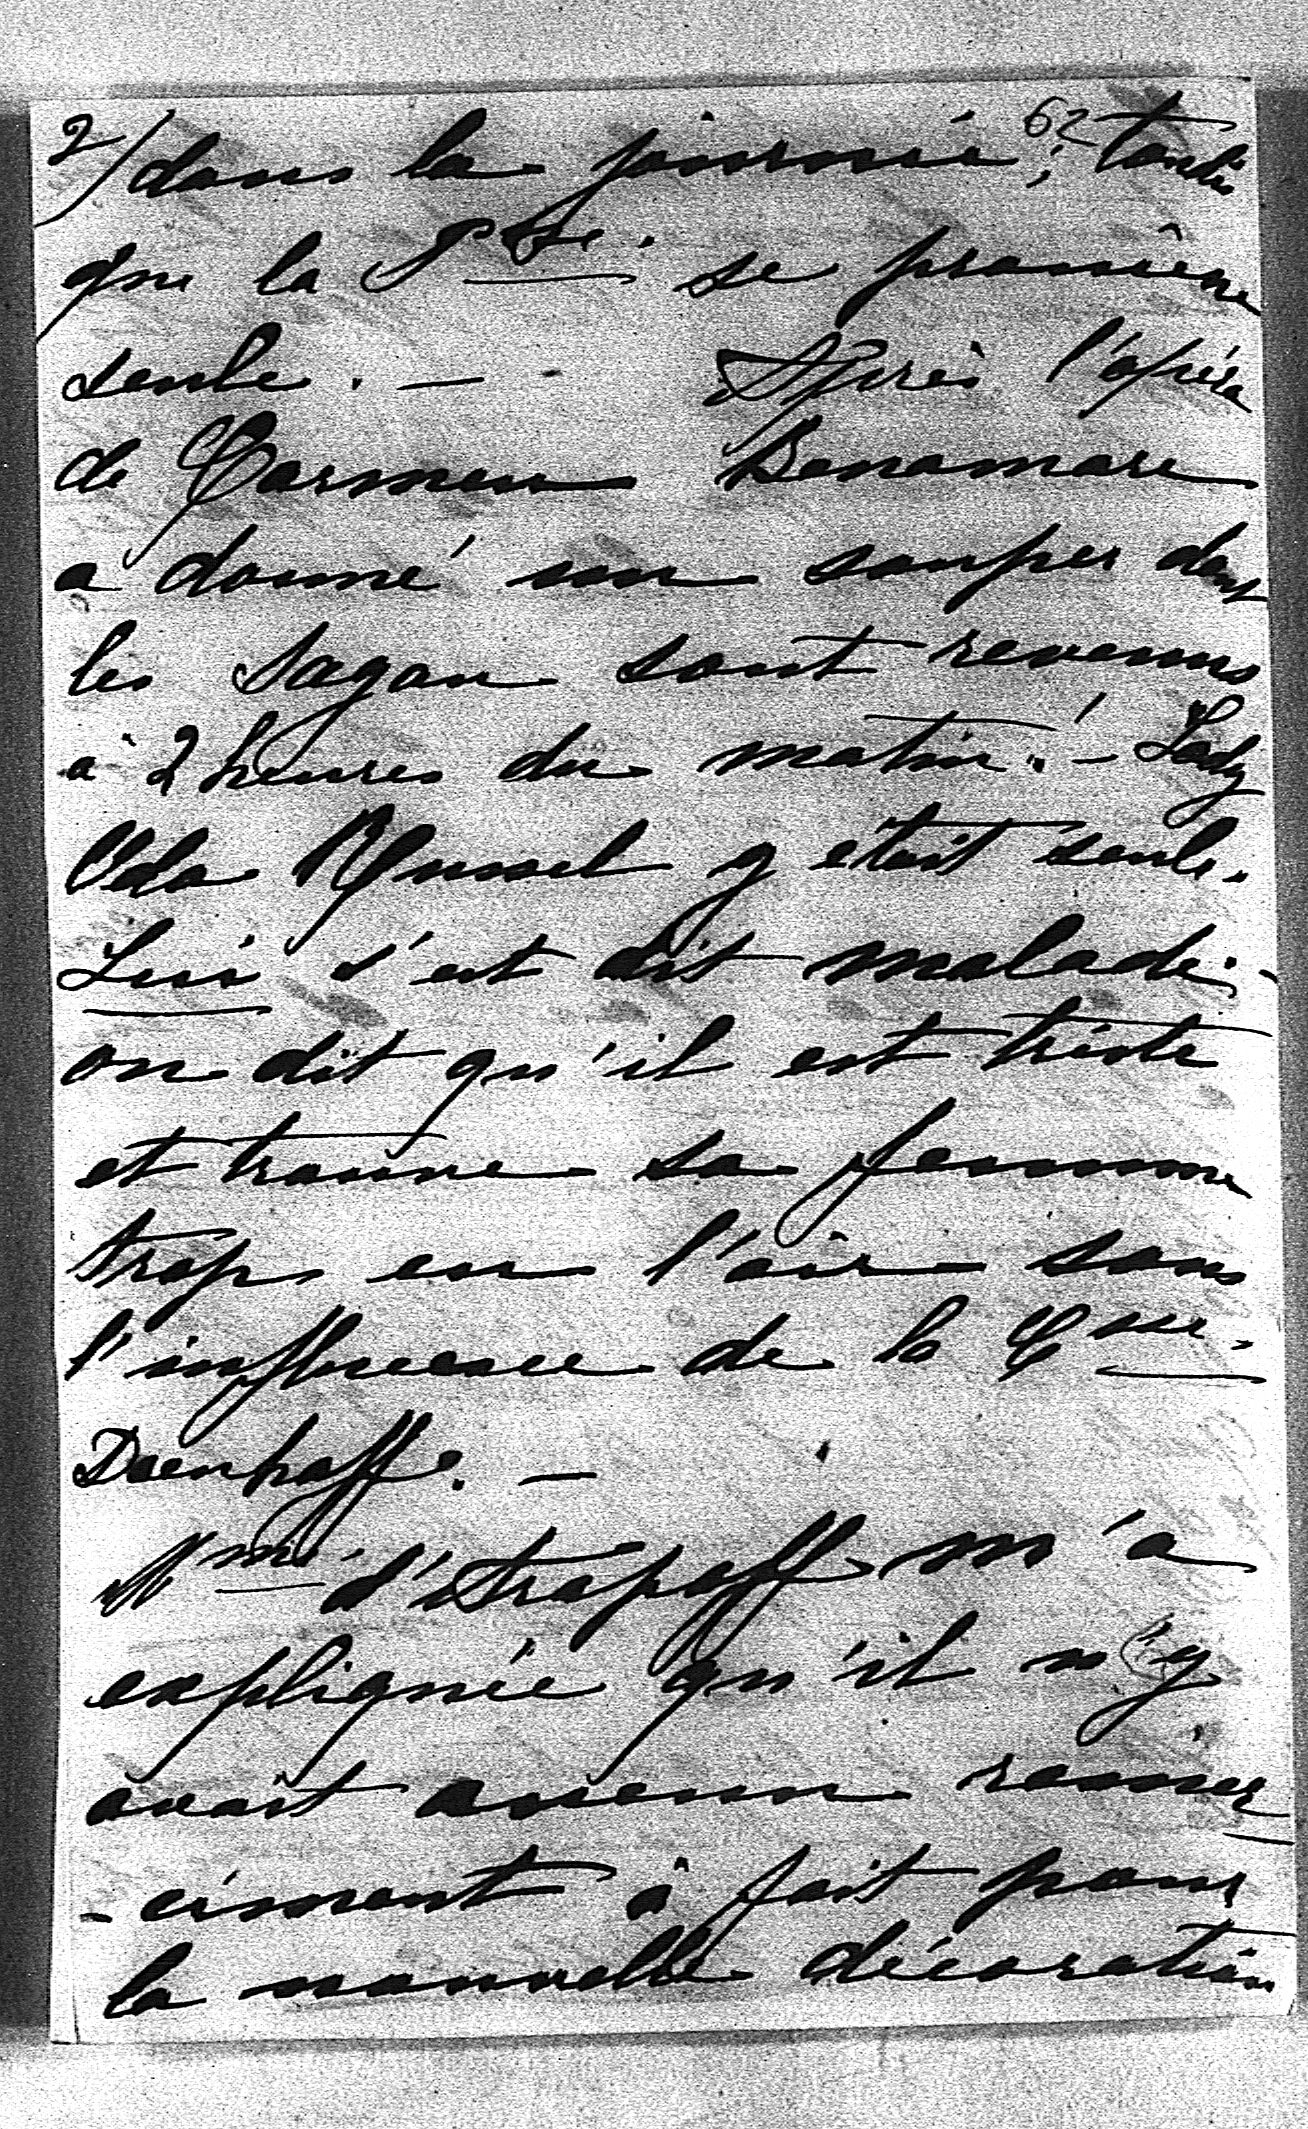 2/ dans la journée, 62 tandis
que la Psse. se promène
seule. — Après l'opéra
de Carmen Benamare
a donné un souper dont
les Sagan sont revenus
à 2 heures du matin. — Lady
Oda Russel y était seule.
Lui s'est dit malade. -
on dit qu'il est triste
et trouve sa femme
trop en l'air sous
l'influence de la Csse.
Doenhoff. —
Mme d'Etrapoff m'a
expliquée qu'il n'y
avait aucun remer
- ciment à fait pour
la nouvelle décoration